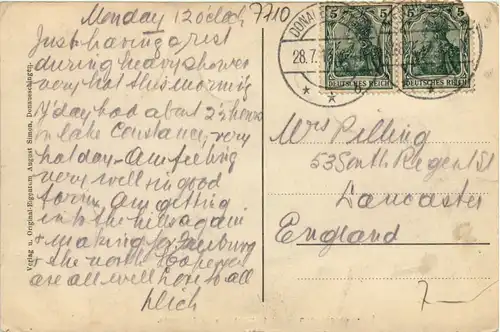 Monday 12 o'clock
7710
Just having a rest
during heavy shower
very hot this morning
Y'day had about 2½ hours
on lake Constance, very
hot day - Am feeling
very well in good
form, Am getting
into the hills again
+ making for Freiburg
+ the north. Hope you
are all well Love to all
Dick
Verlag u. Original-Eigentum August Simon, Donaueschingen.
DONAUE
28.7.
5 5
DEUTSCHES REICH
5 5
DEUTSCHES REICH
Mrs Pilling
53 South Regent St
Lancaster
England
7